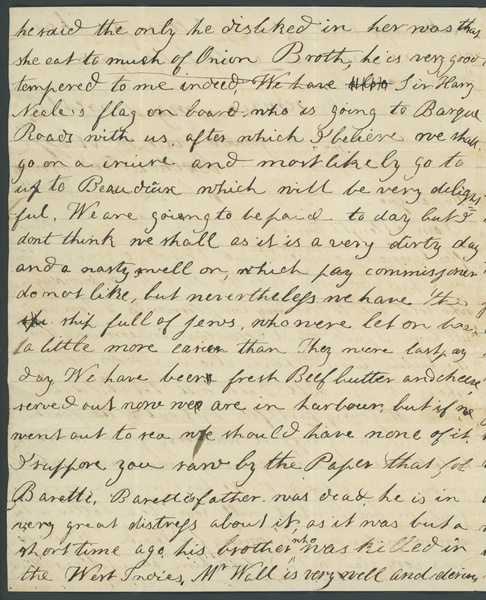 he said the only he disliked in her was that
she eat to much of Onion Broth, he is very good
tempered to me indeed, We have Sir Harry
Neale's flag on board, who is going to Basque
Roads with us, after which I believe we shall
go on a cruise and most likely go to
up to Beaudeaux which will be very deligh
ful, We are going to be paid to day but I
dont think we shall as it is a very dirty day
and a nasty swell on, which pay commissioners
do not like, but nevertheless we have the
ship full of Jews, who were let on board
a little more easier than They were last pay
day We have been fresh Beef butter and cheese
served out now we are in harbour, but if we
went out to sea we should have none of it,
I suppose you saw by the Paper that Col
Baretti, Barettis father was dead, he is in
very great distress about it, as it was but a
short time ago, his brother who was killed in
the West Indies, Mr Wall is very well and